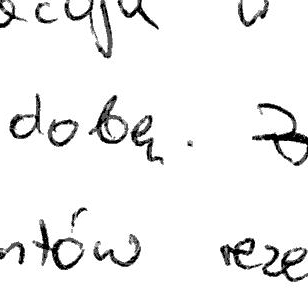 acja w
dobę. Z
ntów reze